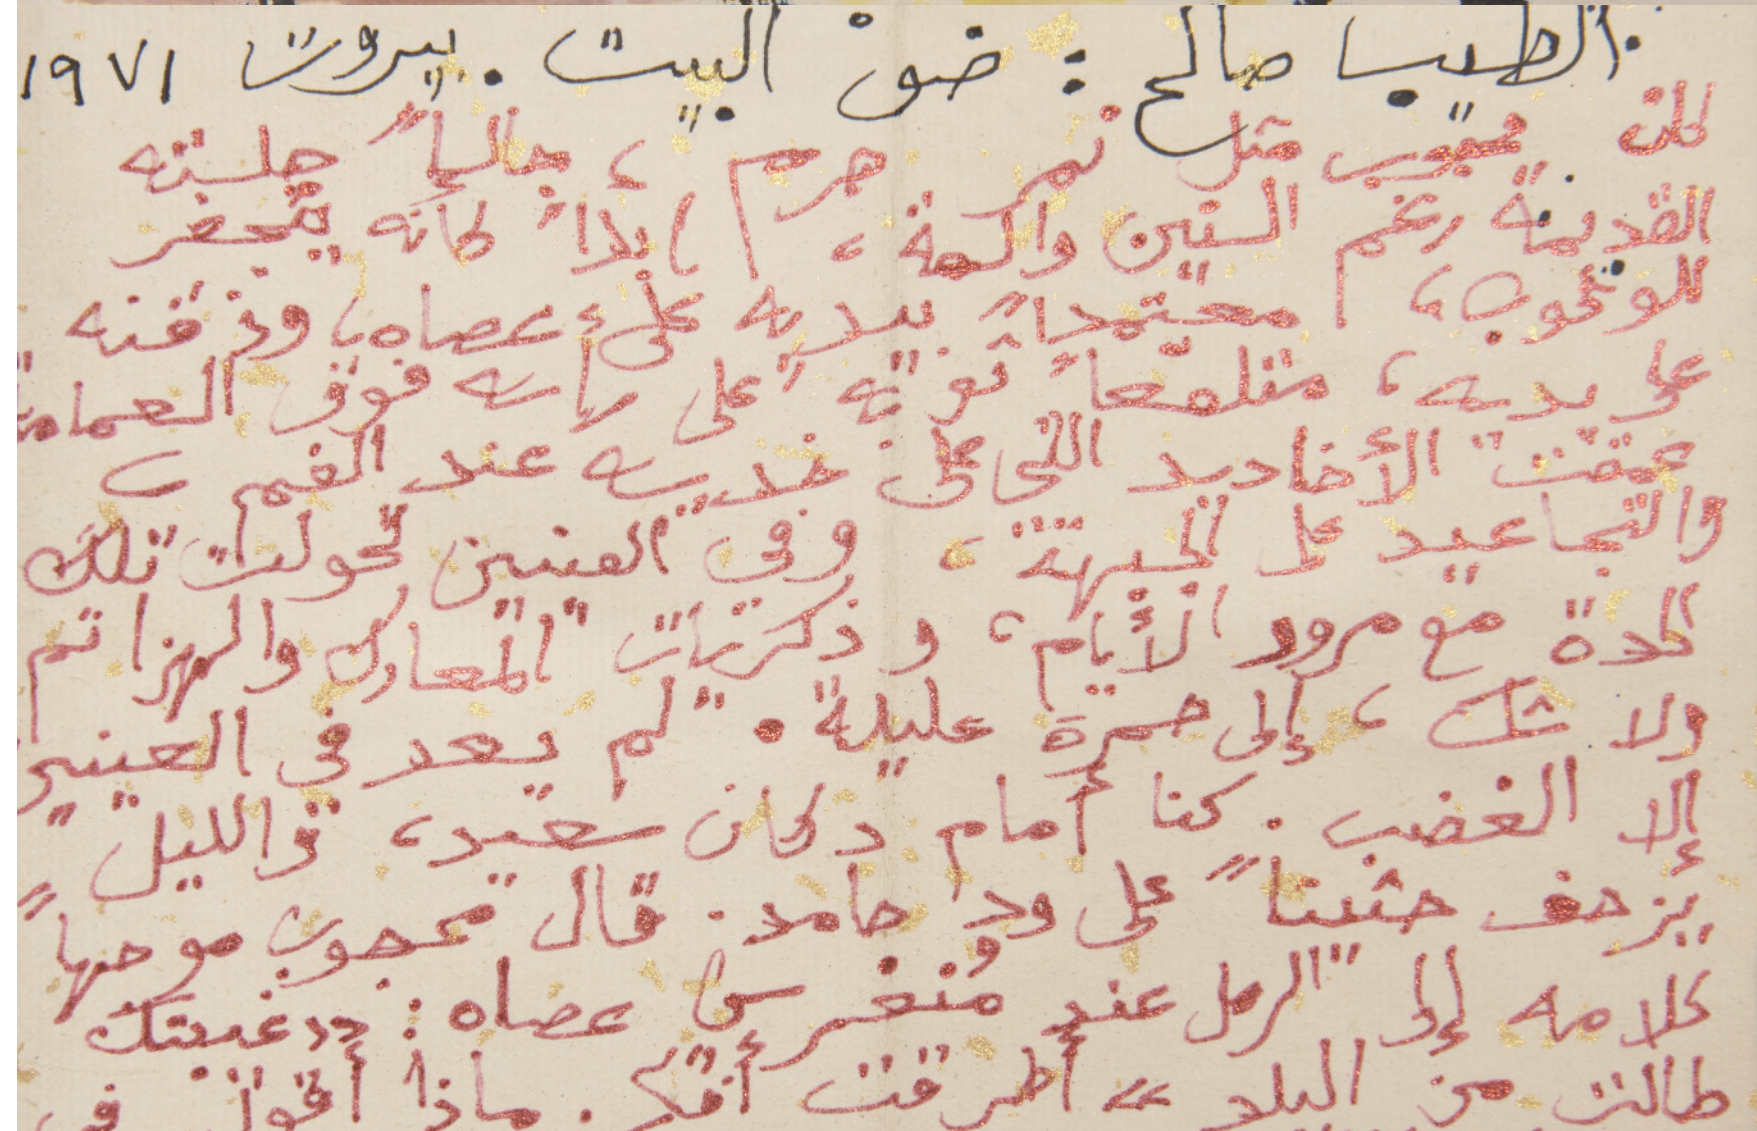 الطيب صالح : ضوْ البيت . بيروت ١٩٧١
كان محجوب مثل نمر هرم ، جالساً جلسته
القديمة رغم السنين والحمة ، أبداً كأنه يتحفز
للوثوب ، معتمداً بيديه على عصاه ، وذقنه
على يديه ، متلفعاً ثوبه على رأسه فوق العمامة
عمقت الأخاديد التي على خديه عند الفم ،
والتجاعيد على الجبهة ، وفي العينين تحولت تلك
الحدة مع مرور الأيام ، وذكريات المعارك والهزائم
ولا شك ، إلى حمرة عليلة . لم يعد في العينين
إلا الغضب . كنا أمام دكان سعيد ، والليل
يزحف حثيثاً على ود حامد . قال محجوب موجهاً
كلامه إلى الرمل عند منغرس عصاه : " غيبتك
طالت من البلد " أطرقت أفكر . ماذا أقول في